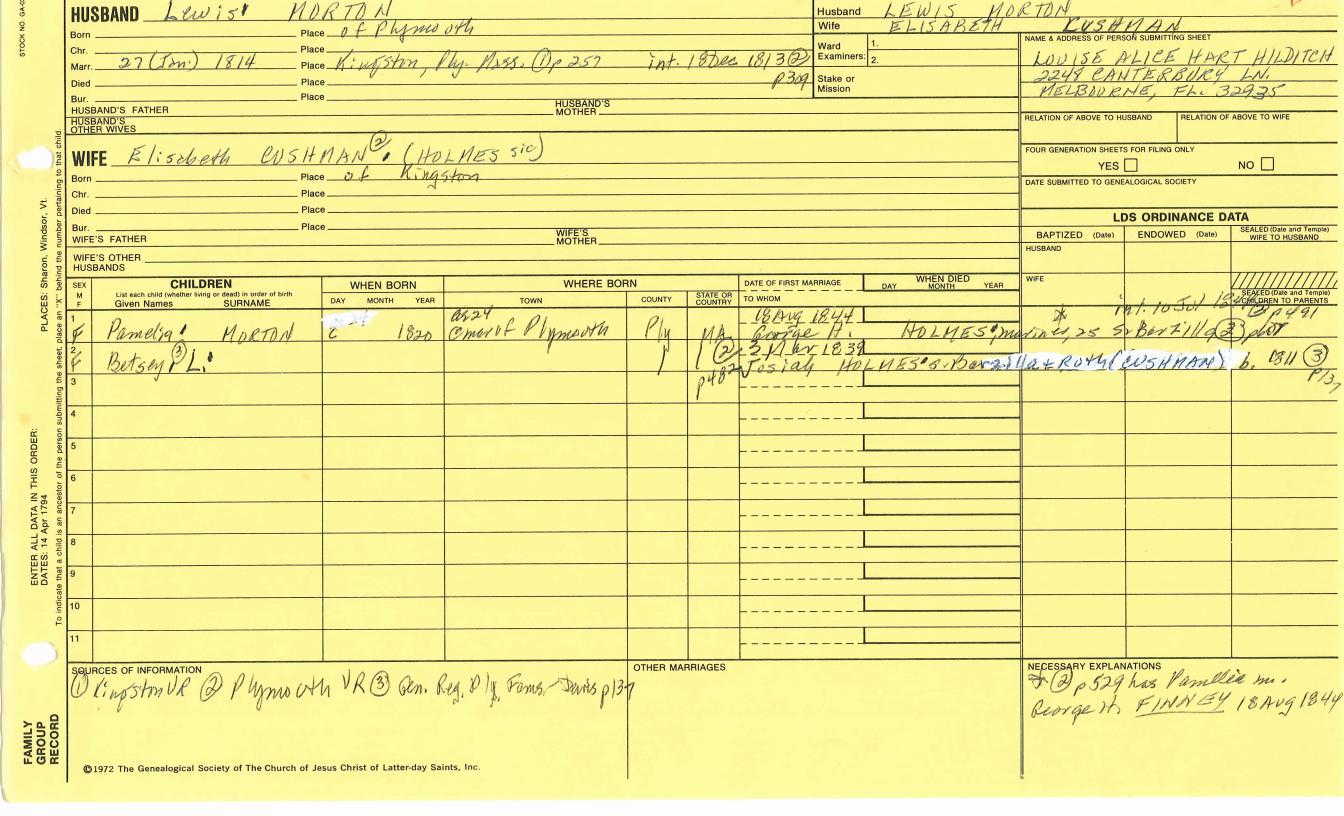 HUSBAND Lewis MORTON
Born Place of Plymouth
Chr. Place
Marr. 27 (Jan.) 1814 Place Kingston, Ply. Mass. ① p 257 int. 18 Dec 1813 ②
p309
Died Place
Bur. Place
HUSBAND'S FATHER HUSBAND'S MOTHER
HUSBAND'S OTHER WIVES
WIFE Elisabeth CUSHMAN ② (HOLMES sic)
Born Place of Kingston
Chr. Place
Died Place
Bur. Place
WIFE'S FATHER WIFE'S MOTHER
WIFE'S OTHER HUSBANDS
Husband LEWIS MORTON
Wife ELISABETH CUSHMAN
Ward Examiners: 1.
2.
Stake or Mission
NAME & ADDRESS OF PERSON SUBMITTING SHEET
LOUISE ALICE HART HILDITCH
2249 CANTERBURY LN.
MELBOURNE, FL. 32935
RELATION OF ABOVE TO HUSBAND RELATION OF ABOVE TO WIFE
FOUR GENERATION SHEETS FOR FILING ONLY
YES NO
DATE SUBMITTED TO GENEALOGICAL SOCIETY
LDS ORDINANCE DATA
BAPTIZED (Date) ENDOWED (Date) SEALED (Date and Temple) WIFE TO HUSBAND
HUSBAND
WIFE
SEALED (Date and Temple) CHILDREN TO PARENTS
SEX M F
CHILDREN
List each child (whether living or dead) in order of birth
Given Names SURNAME
WHEN BORN
DAY MONTH YEAR
WHERE BORN
TOWN COUNTY STATE OR COUNTRY
DATE OF FIRST MARRIAGE
TO WHOM
WHEN DIED
DAY MONTH YEAR
int. 10 Jul
* ② p 491
1 ae 24 18 Aug 1844
F Pamelia MORTON c 1820 Plymouth Ply MA George H. HOLMES mariner, 25 s. Barzilla ②
2 ② 3 Mar 1839
F Betsey ③ L. p482 Josiah HOLMES s. Barzilla & Ruth (CUSHMAN) b. 1811 ③
p137
3
4
5
6
7
8
9
10
11
SOURCES OF INFORMATION
① Kingston VR ② Plymouth VR ③ Gen. Reg. Ply. Fams - Davis p137
OTHER MARRIAGES
NECESSARY EXPLANATIONS
* ② p 529 has Pamelia m.
George H. FINNEY 18 Aug 1844
©1972 The Genealogical Society of The Church of Jesus Christ of Latter-day Saints, Inc.
STOCK NO.
PLACES: Sharon, Windsor, Vt.
ENTER ALL DATA IN THIS ORDER:
DATES: 14 Apr 1794
To indicate that a child is an ancestor of the person submitting the sheet, place an "X" behind the number pertaining to that child.
FAMILY
GROUP
RECORD